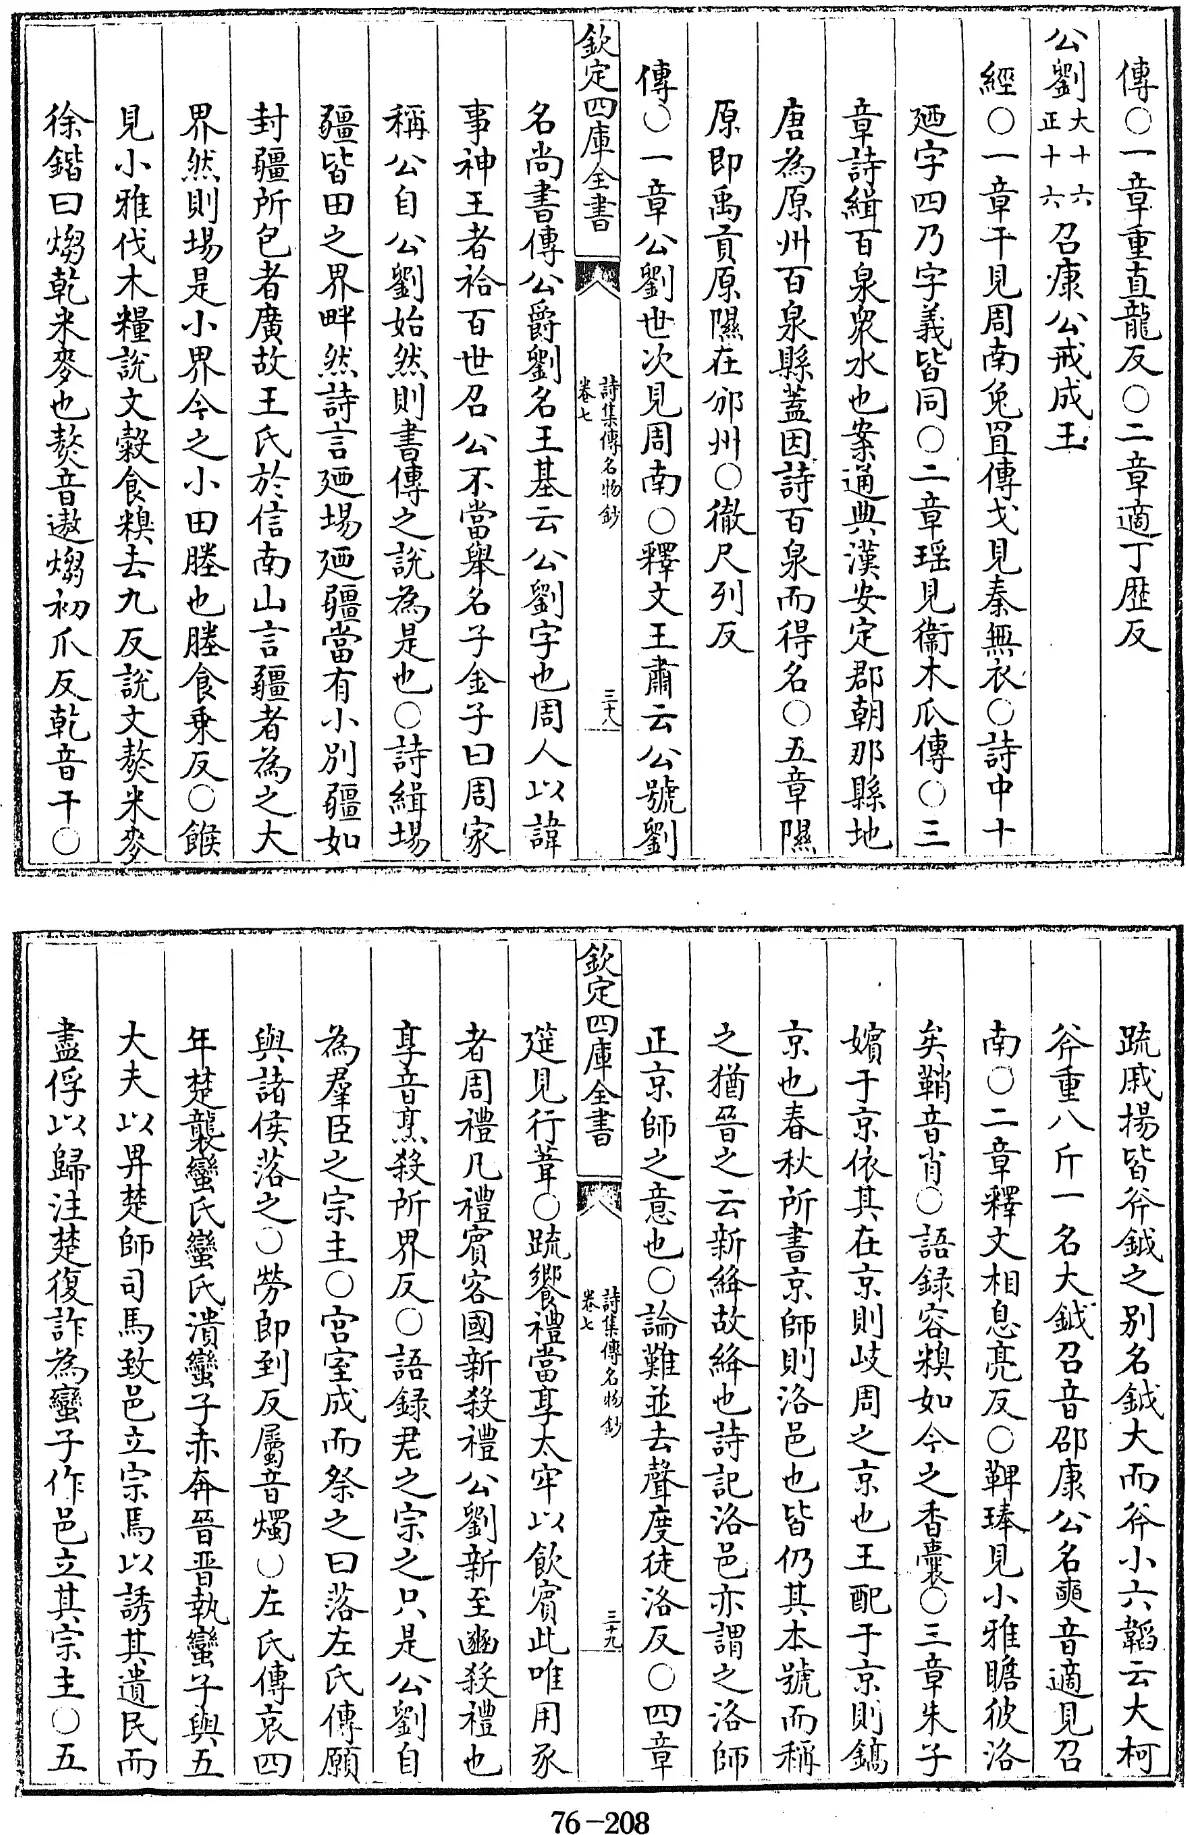 傳○一章重直龍反○二章適丁歷反
公劉大正十六十六召康公戒成王
經○一章干見周南兔罝傳戈見秦無衣○詩中十
廼字四乃字義皆同○二章瑤見衞木瓜傳○三
章詩緝百泉衆水也案通典漢安定郡朝那縣地
唐為原州百泉縣蓋因詩百泉而得名○五章隰
原即禹貢原隰在邠州○徹尺列反
傳○一章公劉世次見周南○釋文王肅云公號劉
欽定四庫全書
詩集傳名物鈔
卷七
三十八
名尚書傳公爵劉名王基云公劉字也周人以諱
事神王者祫百世召公不當舉名子金子曰周家
稱公自公劉始然則書傳之說為是也○詩緝場
疆皆田之界畔然詩言廼場廼疆當有小別疆如
封疆所包者廣故王氏於信南山言疆者為之大
界然則場是小界今之小田塍也塍食乗反○餱
見小雅伐木糧說文穀食糗去九反說文熬米麥
徐鍇曰㷅乾米麥也熬音遨㷅初爪反乾音干○
䟽戚揚皆斧鉞之别名鉞大而斧小六韜云大柯
斧重八斤一名大鉞召音邵康公名奭音適見召
南○二章釋文相息亮反○鞞琫見小雅瞻彼洛
矣鞘音肖○語録容糗如今之香囊○三章朱子
嬪于京依其在京則岐周之京也王配于京則鎬
京也春秋所書京師則洛邑也皆仍其本號而稱
之猶晉之云新絳故絳也詩記洛邑亦謂之洛師
正京師之意也○論難並去聲度徒洛反○四章
欽定四庫全書
詩集傳名物鈔
卷七
三十九
筵見行葦○䟽饗禮當享太牢以飲賔此唯用豕
者周禮凡禮賔客國新殺禮公劉新至豳殺禮也
享音烹殺所界反○語録君之宗之只是公劉自
為羣臣之宗主○宫室成而祭之曰落左氏傳願
與諸侯落之○勞郎到反屬音燭○左氏傳哀四
年楚襲蠻氏蠻氏潰蠻子赤奔晉晉執蠻子與五
大夫以畀楚師司馬致邑立宗焉以誘其遺民而
盡俘以歸注楚復詐為蠻子作邑立其宗主○五
76-208